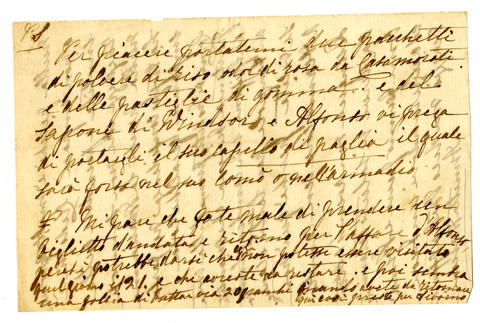 PS
Per piacere portatemi due pacchetti
di polvere di riso odor di rosa da Casamorati
e delle pastiglie di gomma. e del
sapone di Windsor, e Alfonso vi prega
di portargli il suo capello di paglia il quale
sarà forse nel suo comò o nell'armadio
Mi pare che fate male di prendere un
biglietto d'andata e ritorno per l'affare d'Alfonso
perché potrebbe darsi che non potesse essere visitato
quel giorno il 21. e che avreste da restare. e poi sembra
una